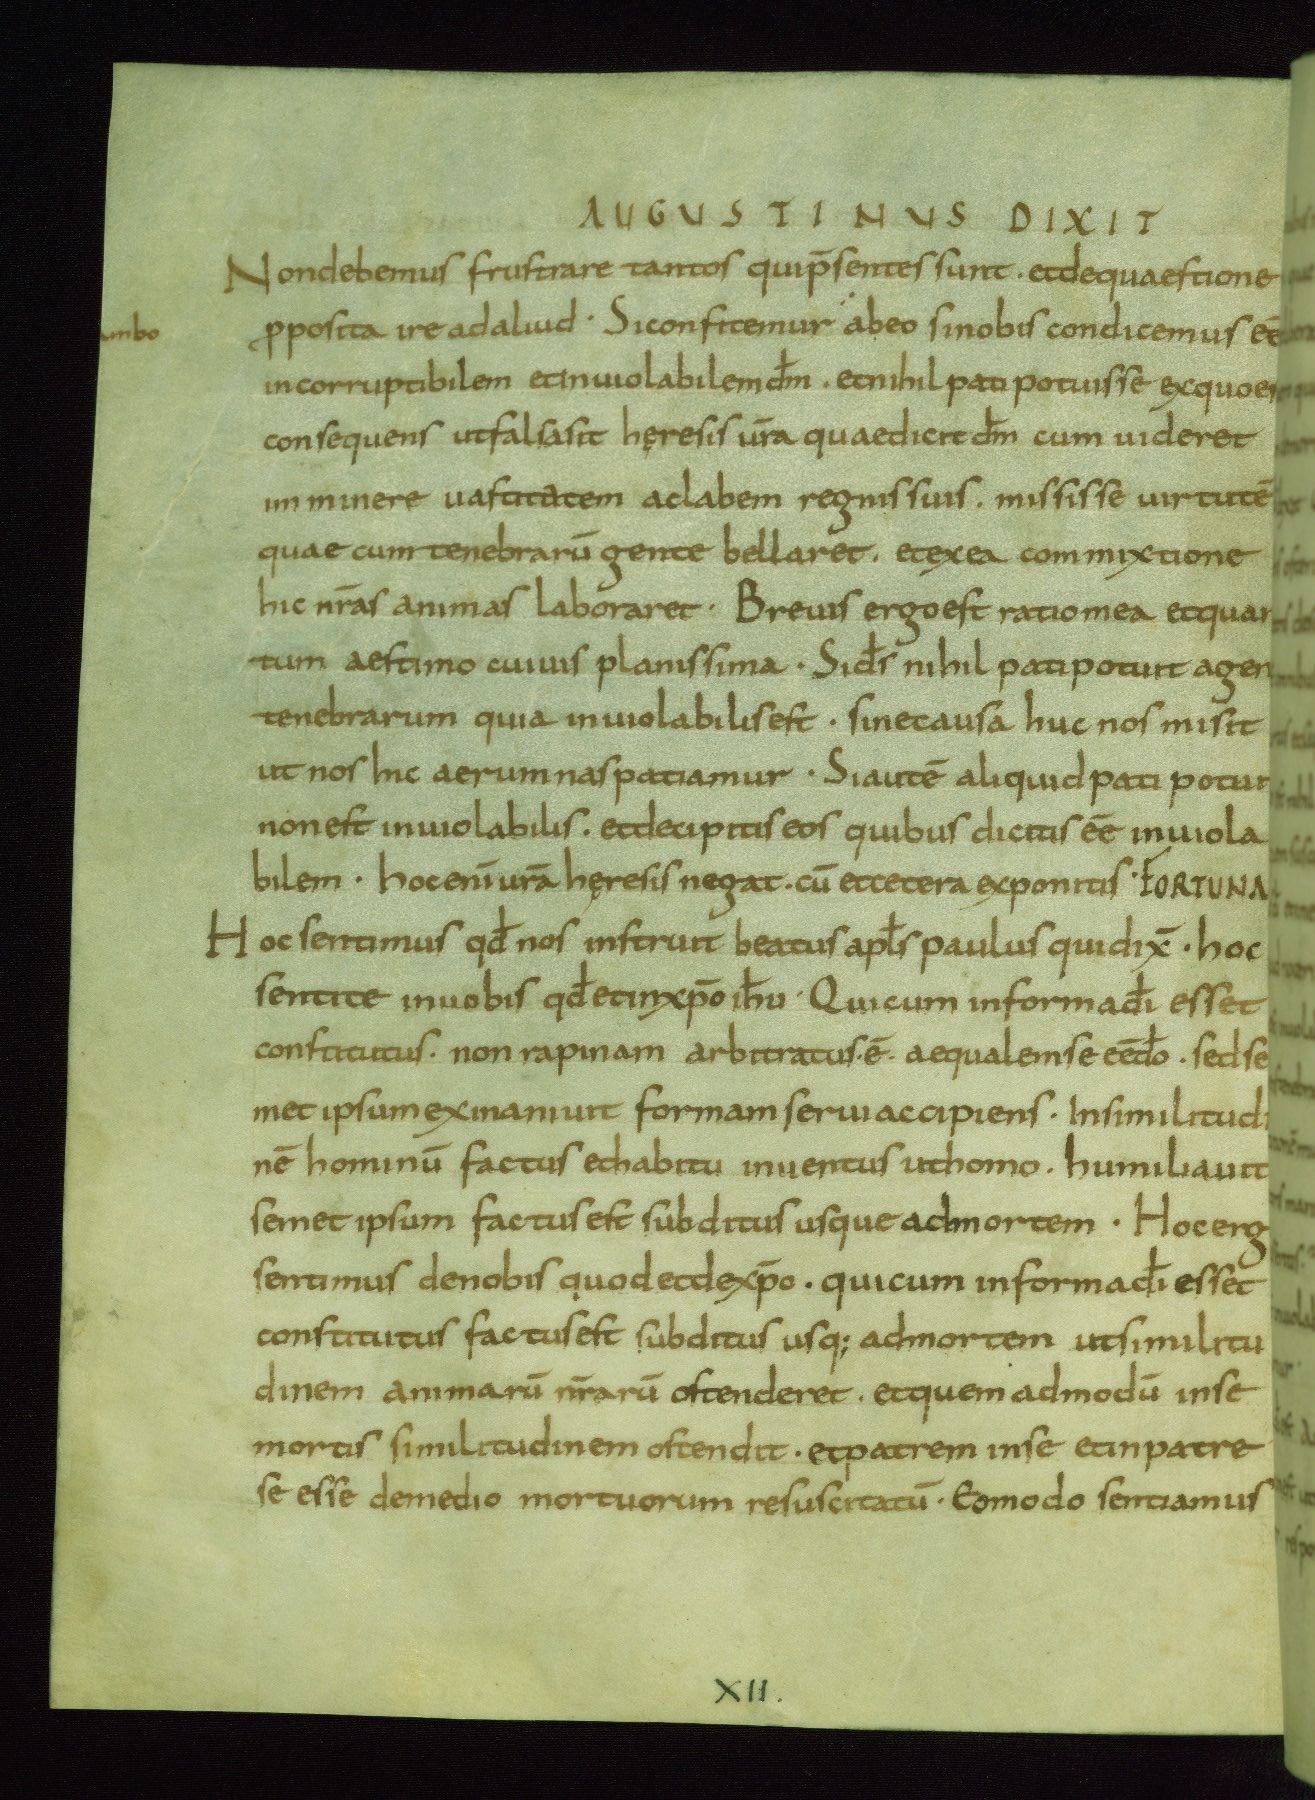 AUGUSTINUS DIXIT
Non debemus frustrare tantos qui p̄sentes sunt . et de quaestione
ꝓposita ire ad aliud · Si confitemur abeo si nobis condicemus eē
incorruptibilem et inuiolabilem dm̄ . et nihil pati potuisse ex quo
consequens ut falsa sit hęresis ur̄a quae dicit dm̄ cum uideret
imminere uastitatem ac labem regnis suis . misisse uirtutē
quae cum tenebrarū gente bellaret . et ex ea commixtione
hic nr̄as animas laboraret · Breuis ergo est ratio mea et quan
tum aestimo cuiuis planissima · Si ds̄ nihil pati potuit a gen
tenebrarum quia inuiolabilis est · sine causa huc nos misit
ut nos hic aerumnas patiamur · Si autē aliquid pati potui
non est inuiolabilis . et decipitis eos quibus dicitis eē inuiola
bilem · hoc enī ur̄a hęresis negat . cū et cetera exponitis · FORTUNA
Hoc sentimus qd̄ nos instruit beatus apl̄s paulus qui dix̄ · hoc
sentite in uobis qd̄ et in xp̄o ih̄u · Qui cum in forma dī esset
constitutus . non rapinam arbitratus · ē · aequalem se eē dō . sed se
met ipsum exinaniuit formam serui accipiens · In similitudi
nē hominū factus et habitu inuentus ut homo . humiliauit
semet ipsum factus est subditus usque ad mortem · Hoc erg
sentimus de nobis quod et de xp̄o . qui cum in forma dī esset
constitutus factus est subditus usq; ad mortem ut similitu
dinem animarū nr̄arū ostenderet . et quem ad modū in se
mortis similitudinem ostendit . et patrem in se et in patre
se esse de medio mortuorum resuscitatū · Eo modo sentiamus
XII.